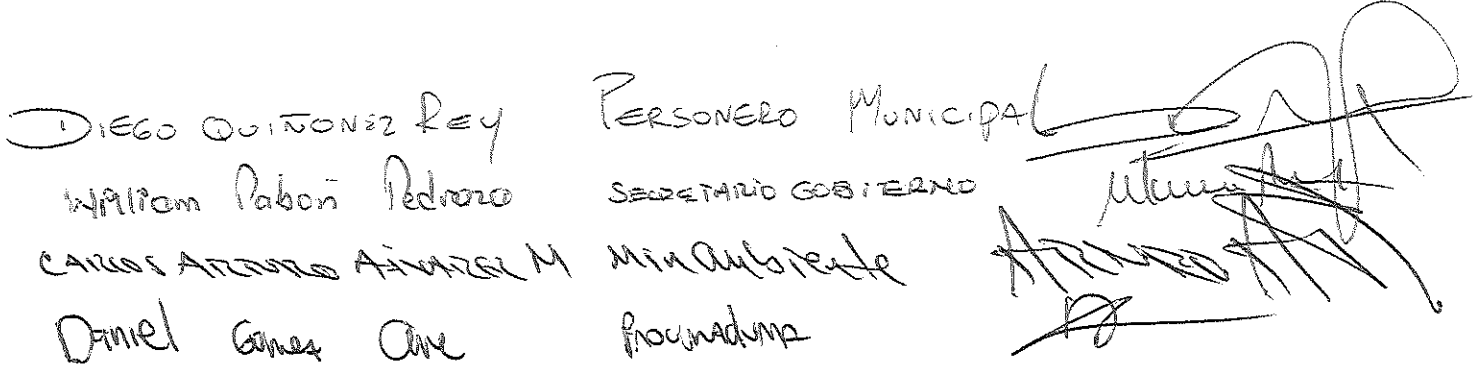 DIEGO QUIÑONEZ REY PERSONERO MUNICIPAL
William Pabón Pedrozo SECRETARIO GOBIERNO
CARLOS ARTURO ALVAREZ M Minambiente
Daniel Gomez Procuraduria